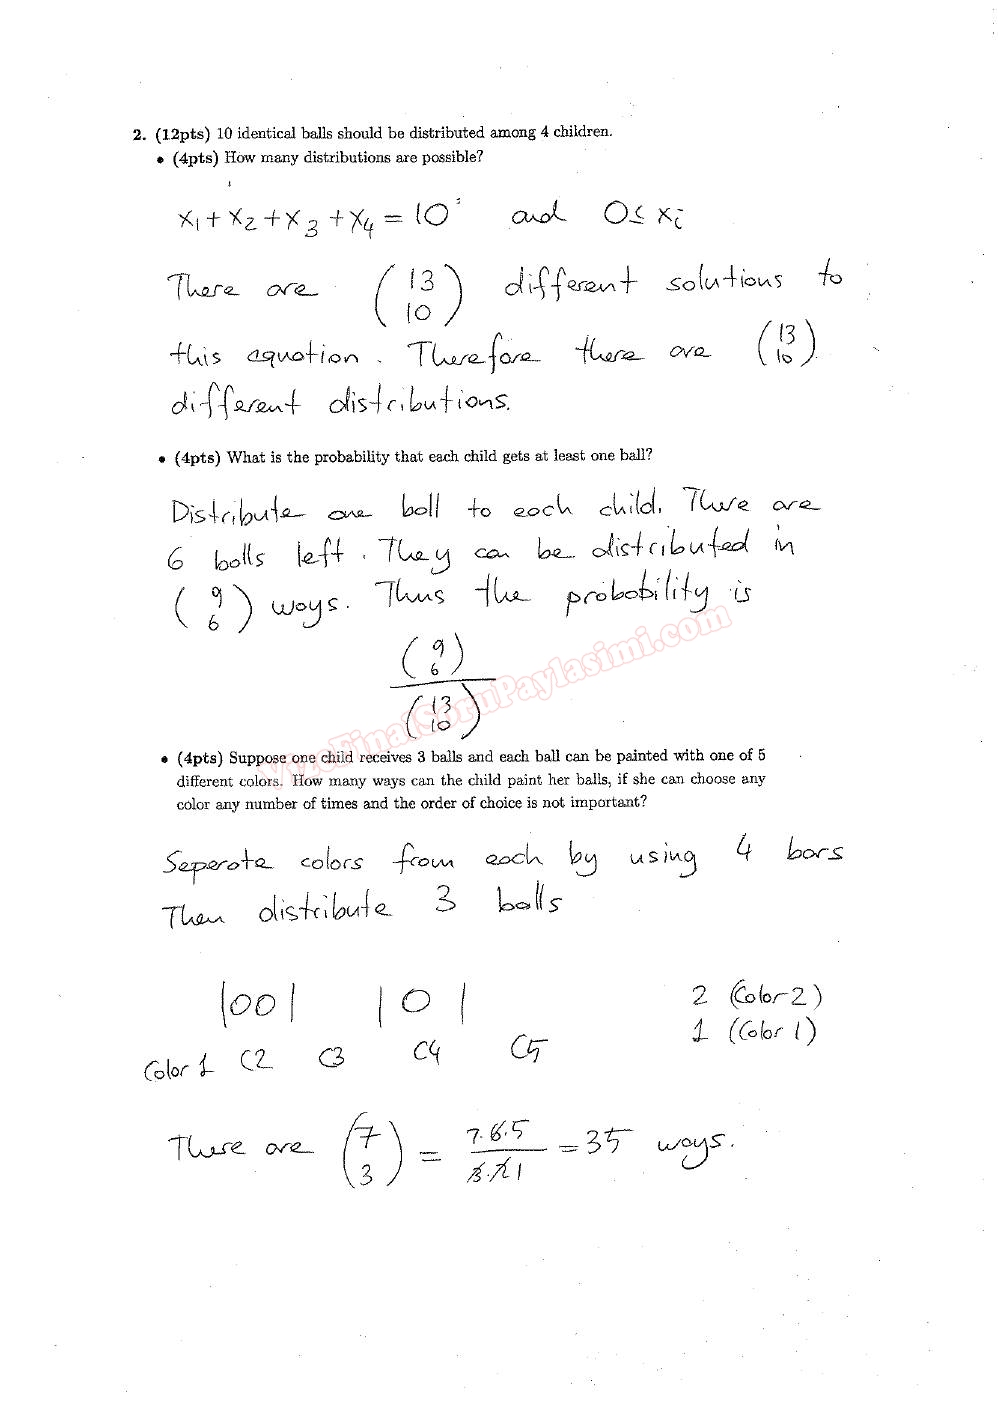 2. (12pts) 10 identical balls should be distributed among 4 children.
• (4pts) How many distributions are possible?
x1 + x2 + x3 + x4 = 10 and 0 ≤ xi
There are (13 10) different solutions to
this equation. Therefore there are (13 10)
different distributions.
• (4pts) What is the probability that each child gets at least one ball?
Distribute one ball to each child. There are
6 balls left. They can be distributed in
(9 6) ways. Thus the probability is
(9 6)
(13 10)
VizeFinalSoruPaylasimi.com
• (4pts) Suppose one child receives 3 balls and each ball can be painted with one of 5
different colors. How many ways can the child paint her balls, if she can choose any
color any number of times and the order of choice is not important?
Seperate colors from each by using 4 bars
Then distribute 3 balls
|00| |0| 2 (Color 2)
1 (Color 1)
Color 1 C2 C3 C4 C5
There are (7 3) = 7.6.5 / 3.2.1 = 35 ways.